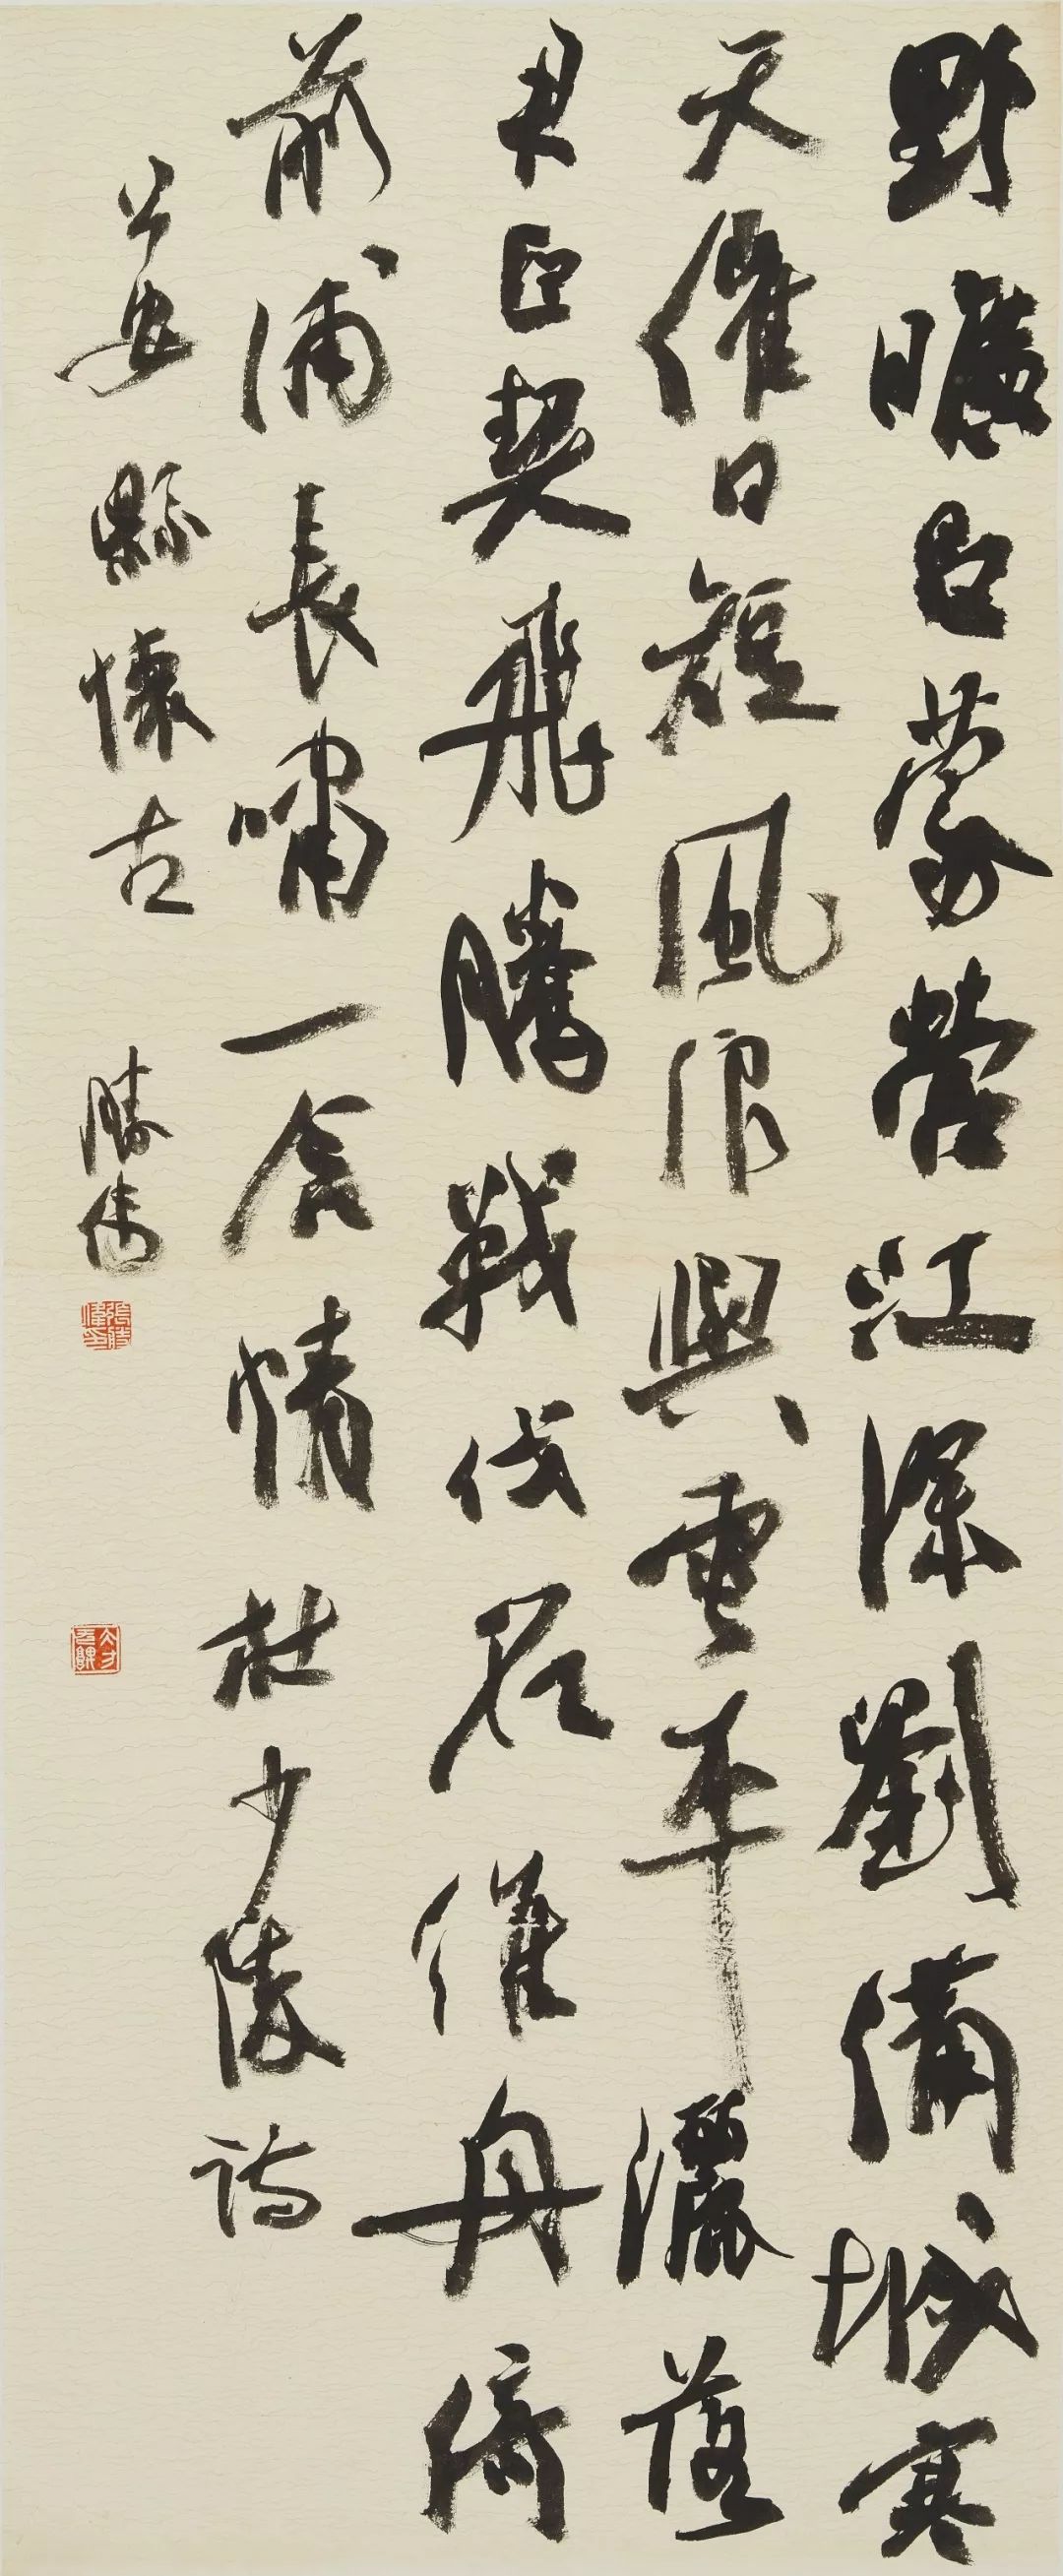 野曠呂蒙營江深劉備城寒
天催日短風浪與雲平灑落
君臣契飛騰戰伐名維舟倚
前浦長嘯一含情 杜少陵詩
公安縣懷古 勝偉
張勝偉印